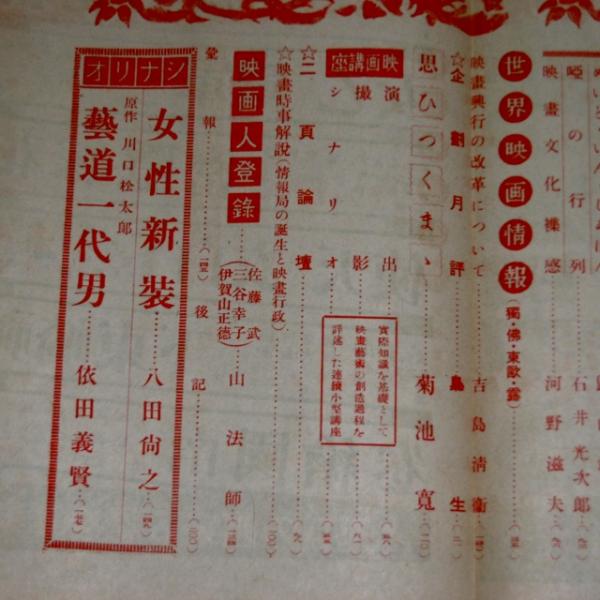 映畫文化襍感……河野滋夫
啞の行列……石井光次郎
世界映画情報(獨・佛・東歐・露)
映畫興行の改革について……吉島淸衞
☆企劃月評……島生
思ひつくまゝ……菊池寛
映画講座
演出
撮影
シナリオ
實際知識を基礎として
映畫藝術の創造過程を
評述した連續小型講座
☆二頁論壇
☆映畫時事解説(情報局の誕生と映畫行政)
映画人登錄
佐藤武
三谷幸子
伊賀山正德
山法師
彙報
後記
シナリオ
女性新装……八田尙之
原作 川口松太郎
藝道一代男……依田義賢